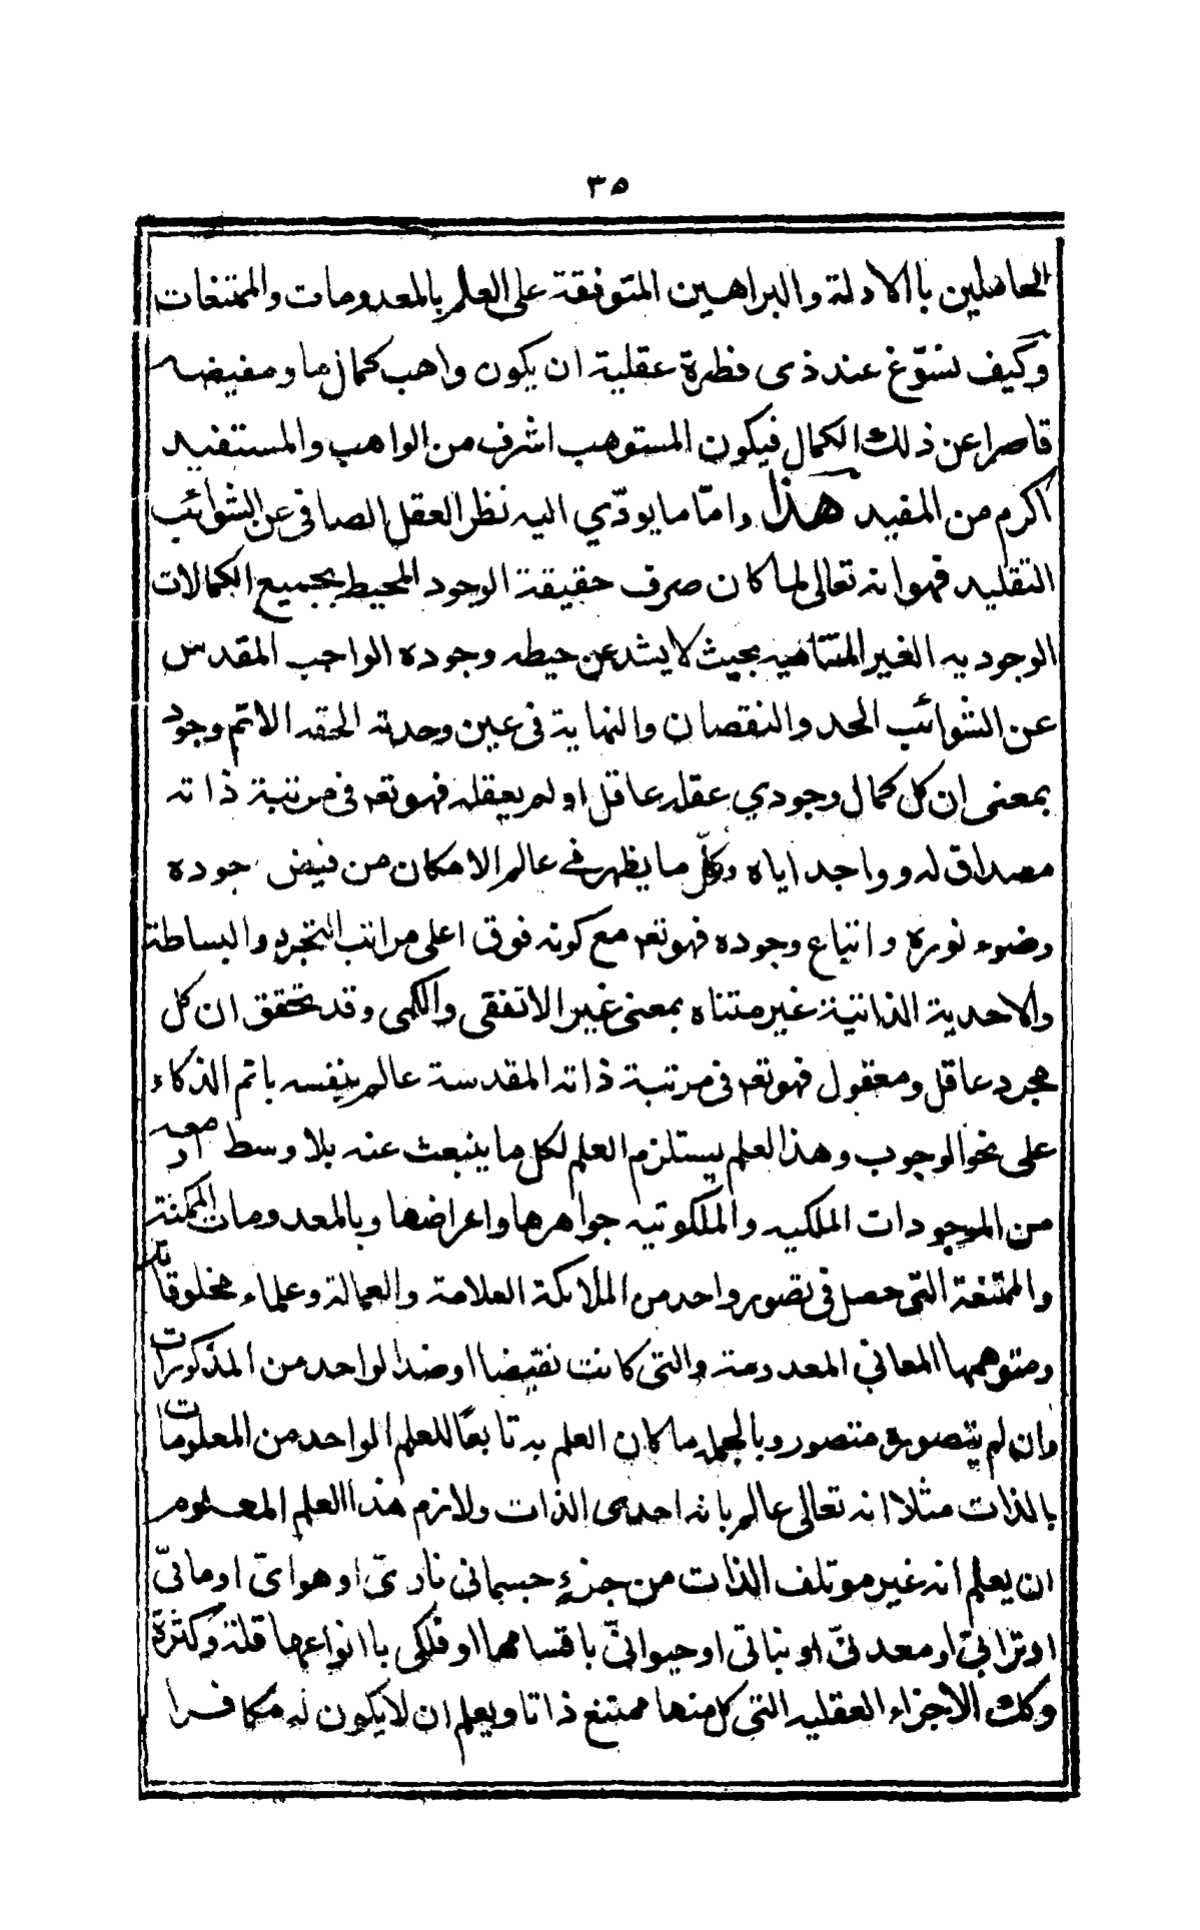 ٣٥
الحاصلين باالادلة والبراهين المتوفقة على العلم بالمعدومات والممتنعات
وكيف نسوّغ عند ذى فطرة عقلية ان يكون واهب كمال ما ومفيضه
قاصرا عن ذلك الكمال فيكون المستوهب اشرف من الواهب والمستفيد
اكرم من المفيد هذا وامّا ما يودّي اليه نظر العقل الصافى عن الشوائب
التقليد فهوانه تعالى لما كان صرف حقيقة الوجود المحيط بجميع الكمالات
الوجوديه الغير المتناهيه بحيث لا يشد عن حيطه وجوده الواجب المقدس
عن الشوائب الحد والنقصان والنهاية فى عين وحدته الحقه الاتم وجود
بمعنى ان كل كمال وجودي عقله عاقل اولم يعقله فهوتعه فى مرتبة ذاته
مصداق له وواجد اياه وكلّ ما يظهر فے عالم الامكان من فيض جوده
وضوء نوره واتباع وجوده فهوتعه مع كونه فوق اعلى مراتب التجرد والبساطة
والاحدية الذاتية غير متناه بمعنى غير الاتفقى والكمى وقد تحقق ان كل
مجرد عاقل ومعقول فهوتعه فى مرتبة ذاته المقدسة عالم بنفسه باتم الذكاء
على نحوالوجوب وهذا العلم يستلزم العلم لكل ما ينبعث عنه بلا وسط اومعه
من الموجودات الملكيه والملكوتيه جواهرها واعراضها وبالمعدومات الممكنة
والممتنعة التى حصل فى تصور واحد من الملائكة العلامة والعمالة وعلماء مخلوقاته
ومتوهمها المعاني المعدومة والتى كانت نقيضا اوضدا لواحد من المذكورات
وان لم يتصوره متصور وبالجمله ما كان العلم به تابعًا للعلم الواحد من المعلومات
بالذات مثلا انه تعالى عالم بانه احدى الذات ولازم هذا العلم المعلوم
ان يعلم انه غير موتلف الذات من جزءٍ جسمانى نارىّ اوهوائىّ اومائىّ
اوترابىّ اومعدنىّ اونباتى اوحيوانىّ باقسامها اوفلكى باانواعها قلة وكثرة
وكك الاجزاء العقليه التى كل منها ممتنع ذاتا ويعلم ان لا يكون له مكافرا